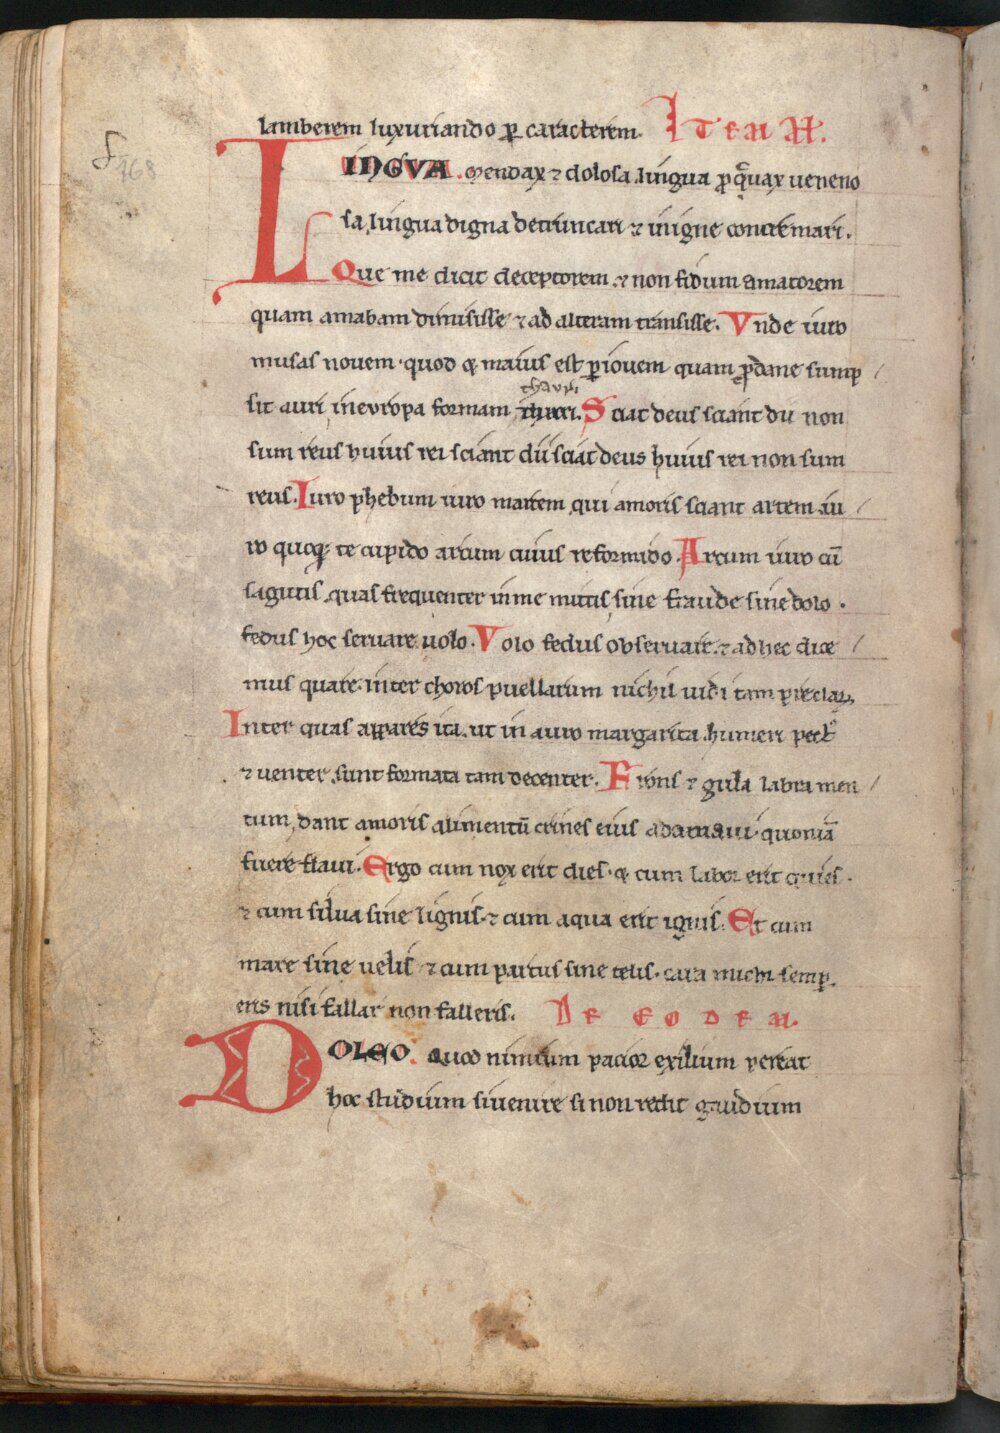 lamberem luxuriando ꝑ caracterem. ITEM AĦ.
LINGVA mendax ⁊ dolosa lingua ꝓquax ueneno
sa, lingua digna detruncari ⁊ in igne concremari.
Que me dicit deceptorem ⁊ non fidum amatorem
quam amabam dimisisse ⁊ ad alteram transisse. Vnde iuro
musas nouem quod ⁊ maius est ꝑ iouem quam ꝓ dane sump
sit auri in europa formam thauri. Sciat deus sciant dii non
sum reus huius rei sciant dii sciat deus huius rei non sum
reus. Iuro phebum iuro martem qui amoris sciant artem iu
ro quoqꝫ te cupido arcum cuius reformido. Arcum iuro cū
sagittis quas frequenter in me mittis sine fraude sine dolo.
fedus hoc seruare uolo. Volo fedus obseruare ⁊ ad hec dice
mus quare. inter choros puellarum nichil uidi tam preclaꝝ
Inter quas appares ita ut in auro margarita humeri pect᷒
⁊ uenter sunt formata tam decenter. Frons ⁊ gula labra men
tum dant amoris alimentū crines eius adamaui quoniā
fuere flaui. Ergo cum nox erit dies ⁊ cum labor erit quies.
⁊ cum silua sine lignis ⁊ cum aqua erit ignis. Et cum
mare sine uelis ⁊ cum partus sine telis cara michi semꝑ
eris nisi fallar non falleris. DE EODEM.
DOLEO. quod nimium pacior exilium pereat
hoc studium si uenire si non reddit gaudium